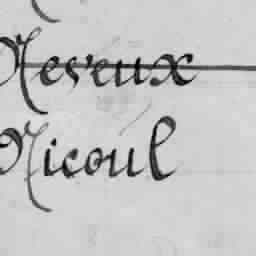 Neveux
Nicoul